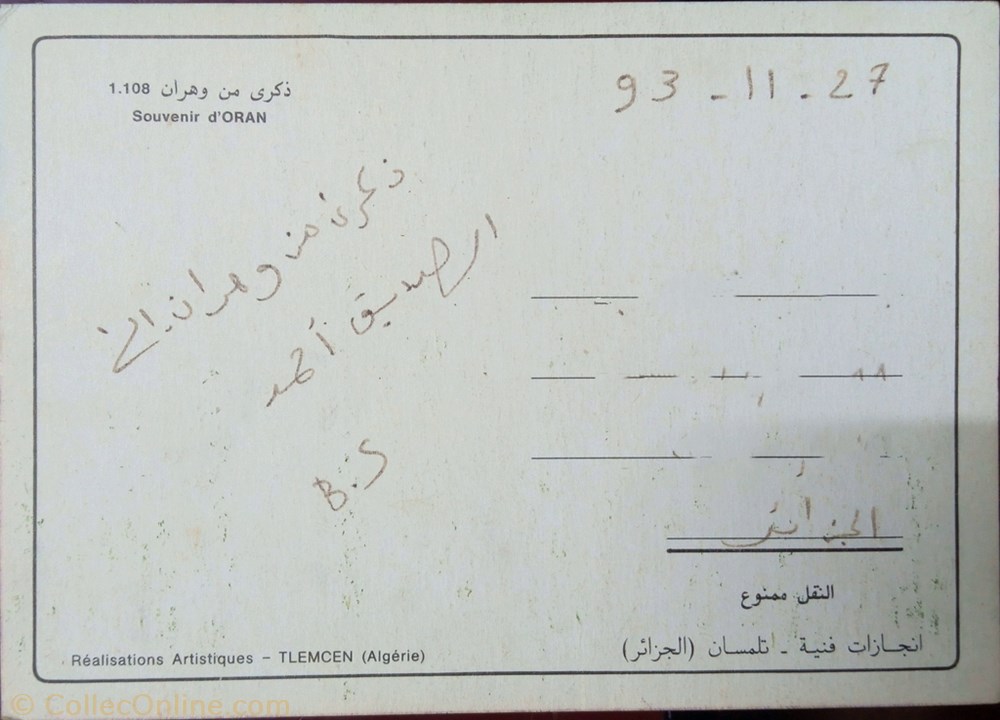 1.108 ذكرى من وهران
Souvenir d'ORAN
93 - 11 - 27
ذكرى من وهران إلى
الصديق أحمد
B.S
الجزائر
النقل ممنوع
انجازات فنية - تلمسان (الجزائر)
Réalisations Artistiques – TLEMCEN (Algérie)
© CollecOnline.com